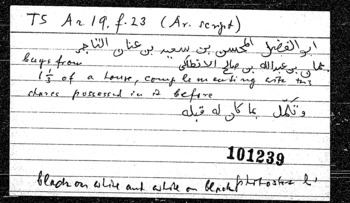 TS Ar 19, f. 23 (Ar. script)
ابو الفضل المحسن بن سعيد بن عنان التاجر
buys from
بن عبدالله بن صالح
1 1/3 of a house, complementing with this
shares possessed in it before
وتكمل بما كان له قبله
101239
black on white and white on black photostat